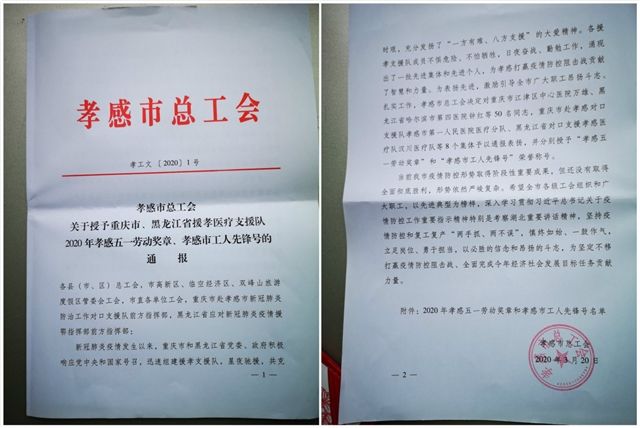 孝感市总工会
孝工文〔2020〕1号
孝感市总工会
关于授予重庆市、黑龙江省援孝医疗支援队
2020年孝感五一劳动奖章、孝感市工人先锋号的
通 报
各县（市、区）总工会，市高新区、临空经济区、双峰山旅游
度假区管委会工会，市直各单位工会，重庆市赴孝感市新冠肺炎
防治工作对口支援队前方指挥部，黑龙江省应对新冠肺炎疫情援
鄂孝感前方指挥部：
新冠肺炎疫情发生以来，重庆市和黑龙江省党委、政府积极
响应党中央和国家号召，迅速组建援孝支援队，星夜驰援，共克
— 1 —
时艰，充分发扬了“一方有难、八方支援”的大爱精神。各援
孝支援队成员不惧危险、不怕牺牲，日夜奋战、勤勉工作，涌现
出了一批先进集体和先进个人，为孝感打赢疫情防控阻击战贡献
了智慧和力量。为表扬先进，激励引导全市广大职工昂扬斗志、
扎实工作，孝感市总工会决定对重庆市江津区中心医院万雄、黑
龙江省哈尔滨市第四医院钟红等50名同志，重庆市赴孝感对口
支援队孝感市第一人民医院医疗分队、黑龙江省对口支援孝感医
疗队汉川医疗队等8个集体予以通报表扬，并分别授予“孝感五
一劳动奖章”和“孝感市工人先锋号”荣誉称号。
当前我市疫情防控形势取得阶段性重要成果，但还没有取得
全面彻底胜利，形势依然严峻复杂。希望全市各级工会组织和广
大职工，以先进典型为榜样，深入学习贯彻习近平总书记关于疫
情防控工作重要指示精神特别是考察湖北重要讲话精神，坚持疫
情防控和复工复产“两手抓、两不误”，慎终如始、一鼓作气，
立足岗位、勇于担当，以必胜的信念和昂扬的斗志，为坚定不移
打赢疫情防控阻击战、全面完成今年经济社会发展目标任务贡献
力量。
附件：2020年孝感五一劳动奖章和孝感市工人先锋号名单
孝感市总工会
2020年3月20日
— 2 —